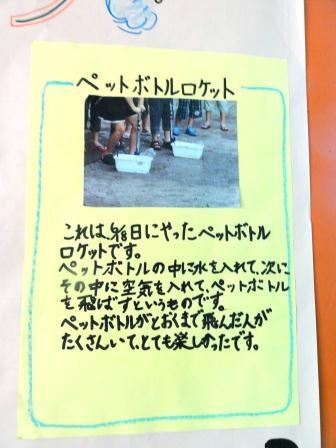 ペットボトルロケット
これは、8日にやったペットボトル
ロケットです。
ペットボトルの中に水を入れて、次に
その中に空気を入れて、ペットボトル
を飛ばすというものです。
ペットボトルがとおくまで飛んだ人が
たくさんいて、とても楽しかったです。